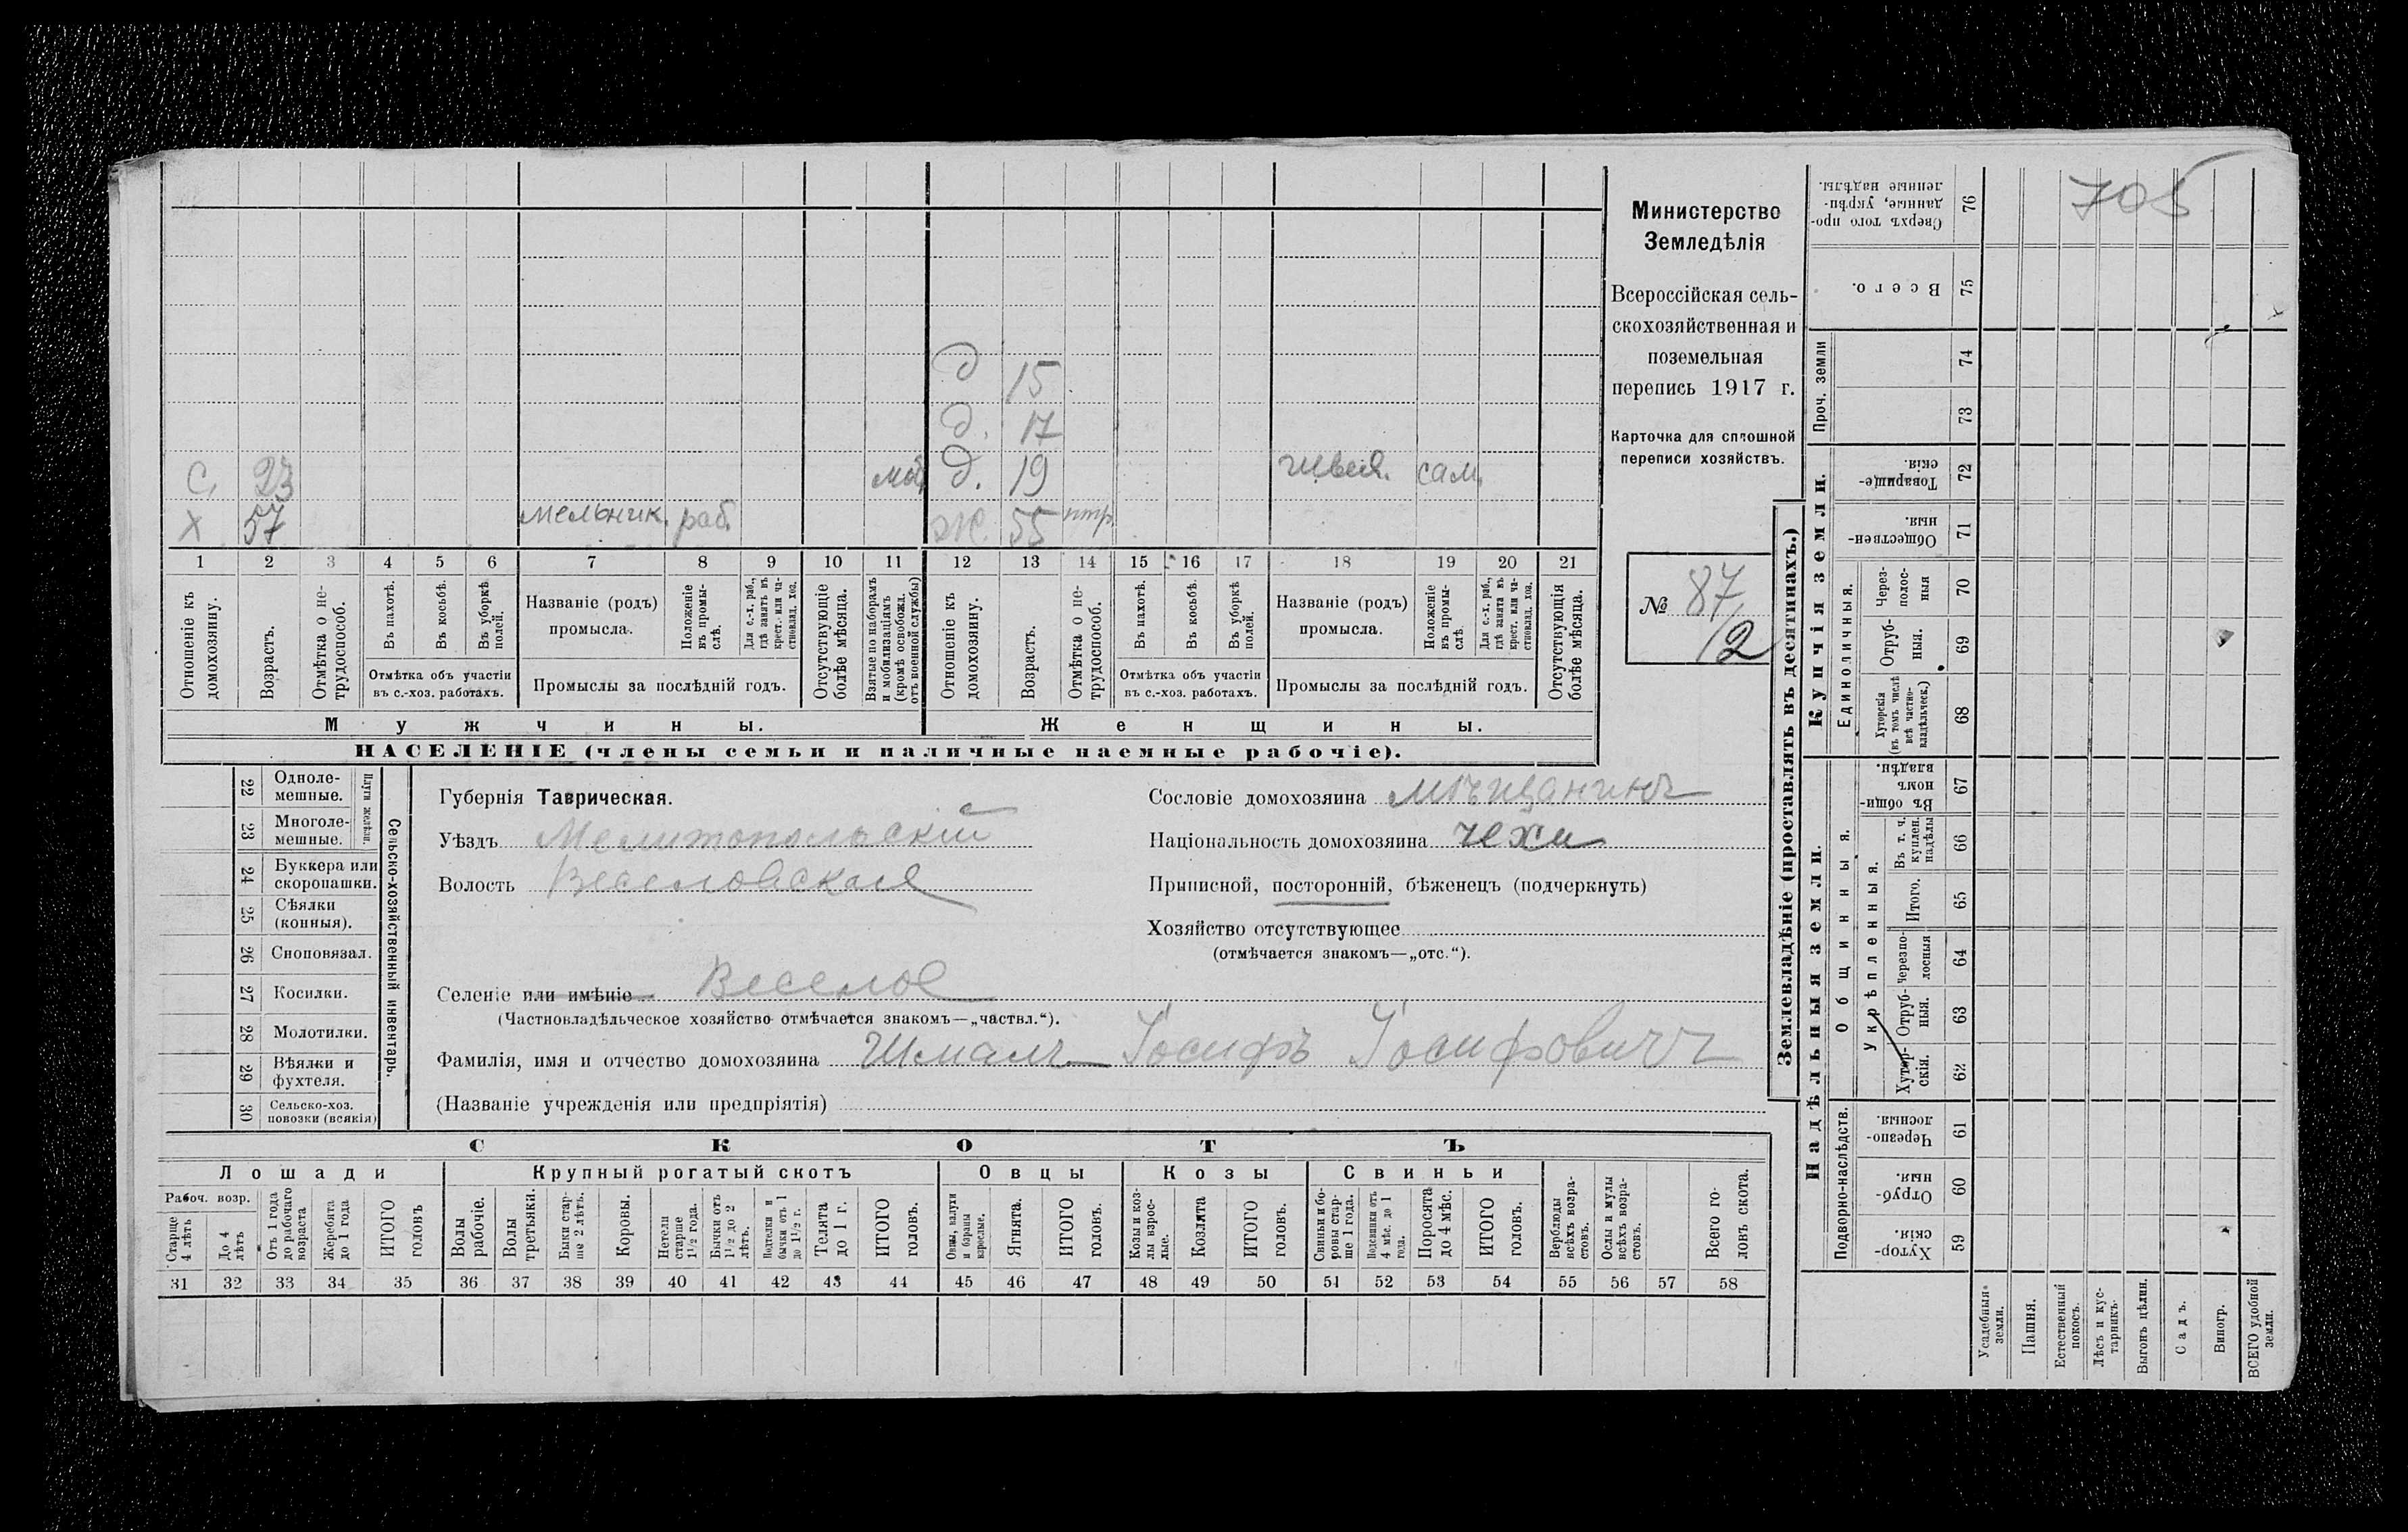 705
Министерство
Земледѣлія
Всероссійская сель-
скохозяйственная и
поземельная
перепись 1917 г.
Карточка для сплошной
переписи хозяйствъ.
№ 87,
12
д 15
д. 17
С, 23 моб. д. 19 швея. сам.
Х 57 мельник. раб. Ж. 55 нтр.
1 2 3 4 5 6 7 8 9 10 11 12 13 14 15 16 17 18 19 20 21
Отношеніе къ домохозяину.
Возрастъ.
Отмѣтка о не-трудоспособ.
Въ пахотѣ.
Въ косьбѣ.
Въ уборкѣ полей.
Отмѣтка объ участіи
въ с.-хоз. работахъ.
Названіе (родъ)
промысла.
Положеніе въ промы-слѣ.
Для с.-х. раб., гдѣ занятъ въ крест. или ча-стновлад. хоз.
Промыслы за послѣдній годъ.
Отсутствующіе болѣе мѣсяца.
Взятые по наборамъ и мобилизаціямъ (кромѣ освобожд. отъ военной службы)
Отношеніе къ домохозяину.
Возрастъ.
Отмѣтка о не-трудоспособ.
Въ пахотѣ.
Въ косьбѣ.
Въ уборкѣ полей.
Отмѣтка объ участіи
въ с.-хоз. работахъ.
Названіе (родъ)
промысла.
Положеніе въ промы-слѣ.
Для с.-х. раб., гдѣ занята въ крест. или ча-стновлад. хоз.
Промыслы за послѣдній годъ.
Отсутствующія болѣе мѣсяца.
Мужчины. Женщины.
НАСЕЛЕНІЕ (члены семьи и наличные наемные рабочіе).
22 Одноле-мешные.
23 Многоле-мешные.
Плуги желѣзн.
24 Буккера или скоропашки.
25 Сѣялки (конныя).
26 Сноповязал.
27 Косилки.
28 Молотилки.
29 Вѣялки и фухтеля.
30 Сельско-хоз. повозки (всякія)
Сельско-хозяйственный инвентарь.
Губернія Таврическая.
Уѣздъ Мелитопольскій
Волость Веселовская
Селеніе или имѣніе Веселое
(Частновладѣльческое хозяйство отмѣчается знакомъ—„частвл.“).
Сословіе домохозяина мѣщанинъ
Національность домохозяина чехи
Приписной, посторонній, бѣженецъ (подчеркнуть)
Хозяйство отсутствующее
(отмѣчается знакомъ—„отс.“).
Фамилія, имя и отчество домохозяина Шмалъ Іосифъ Іосифовичъ
(Названіе учрежденія или предпріятія)
СКОТЪ
Лошади Крупный рогатый скотъ Овцы Козы Свиньи
Рабоч. возр.
Старше 4 лѣтъ
До 4 лѣтъ
Отъ 1 года до рабочаго возраста
Жеребята до 1 года
ИТОГО головъ
Волы рабочіе.
Волы третьяки.
Быки стар-ше 2 лѣтъ.
Коровы.
Нетели старше 1½ года.
Бычки отъ 1½ до 2 лѣтъ.
Подтелки и бычки отъ 1 до 1½ г.
Телята до 1 г.
ИТОГО головъ.
Овцы, валухи и бараны взрослые.
Ягнята.
ИТОГО головъ.
Козы и коз-лы взрос-лые.
Козлята
ИТОГО головъ.
Свиньи и бо-ровы стар-ше 1 года.
Подсвинки отъ 4 мѣс. до 1 года.
Поросята до 4 мѣс.
ИТОГО головъ.
Верблюды всѣхъ возра-стовъ.
Ослы и мулы всѣхъ возра-стовъ.
Всего го-ловъ скота.
31 32 33 34 35 36 37 38 39 40 41 42 43 44 45 46 47 48 49 50 51 52 53 54 55 56 57 58
Землевладѣніе (проставлять въ десятинахъ.)
Сверхъ того про-данные, укрѣп-ленные надѣлы. 76
Всего. 75
Проч. земли 74
73
Купчія земли.
Товарище-скія. 72
Обществен-ныя. 71
Единоличныя.
Через-полос-ныя 70
Отруб-ныя. 69
Хуторскія (въ томъ числѣ всѣ частно-владѣльческ.) 68
Надѣльныя земли.
Общинныя.
Въ общи-номъ владѣн. 67
Укрѣпленныя.
Въ т. ч. куплен. надѣлы 66
Итого. 65
Черезпо-лосныя 64
Отруб-ныя. 63
Хутор-скія. 62
Подворно-наслѣдств.
Черезпо-лосныя. 61
Отруб-ныя. 60
Хутор-скія. 59
Усадебныя земли.
Пашня.
Естественный покосъ.
Лѣсъ и кус-тарникъ.
Выгонъ цѣлин.
Садъ.
Виногр.
ВСЕГО удобной земли.